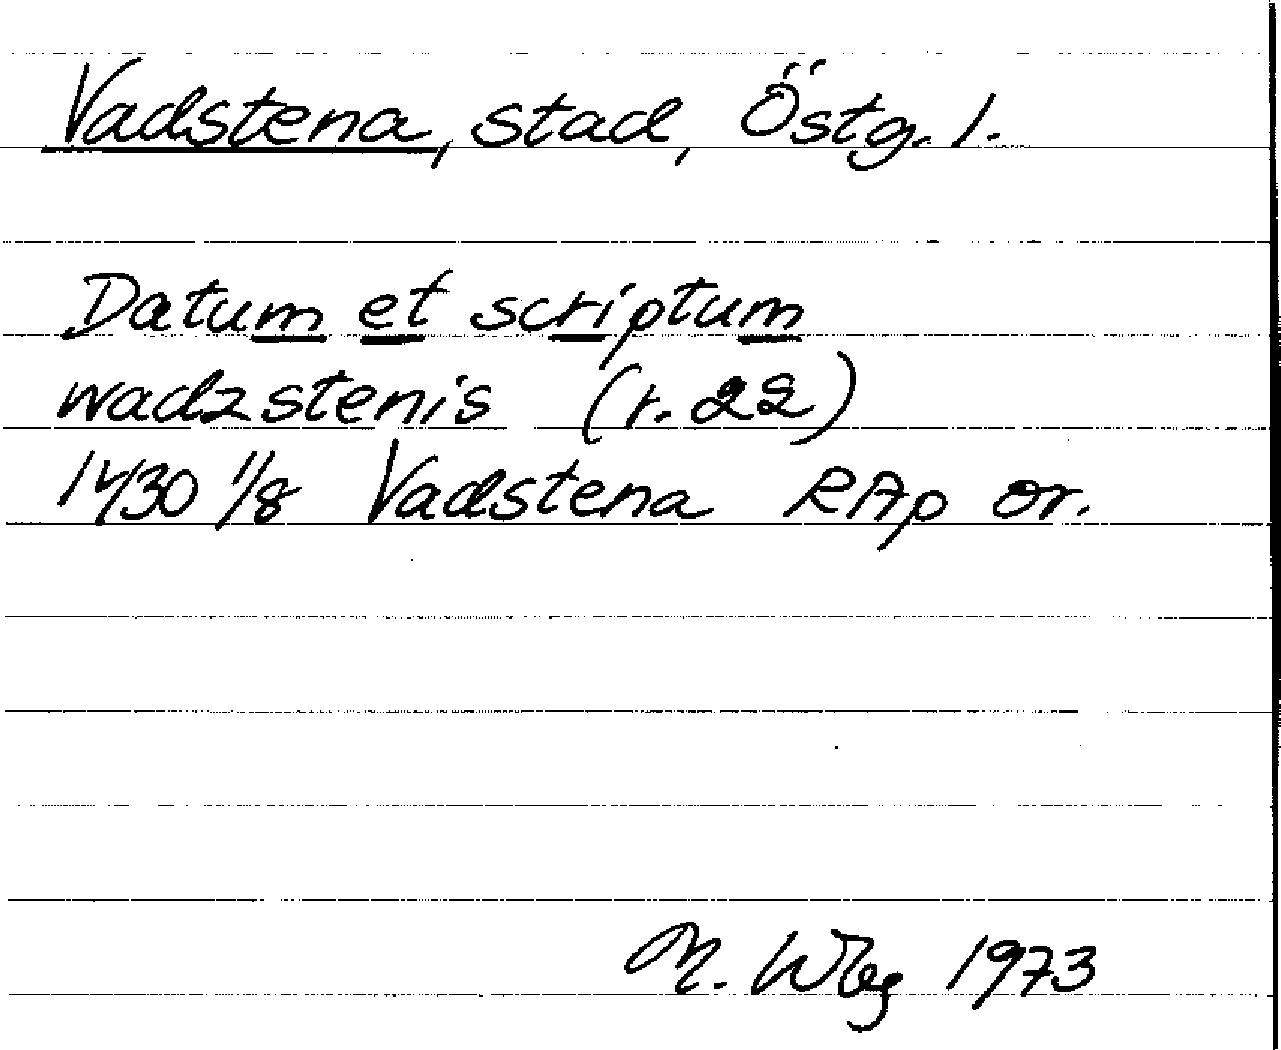 Vadstena, stad, Östg. l.
Datum et scriptum
wadzstenis (r. 22)
1430 1/8 Vadstena RAp or.
M. Wbg 1973